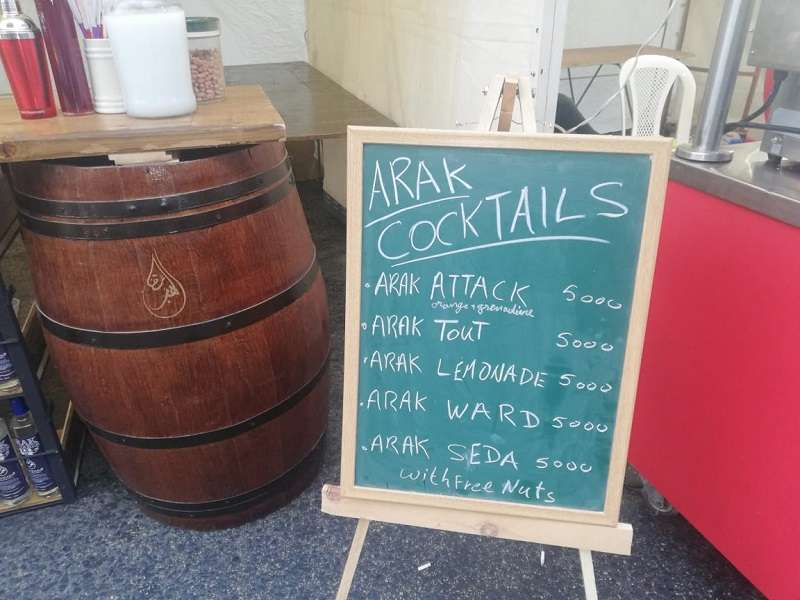 ARAK
COCKTAILS
. ARAK ATTACK 5000
orange + grenadine
. ARAK TOUT 5000
. ARAK LEMONADE 5000
. ARAK WARD 5000
. ARAK SEDA 5000
with Free Nuts